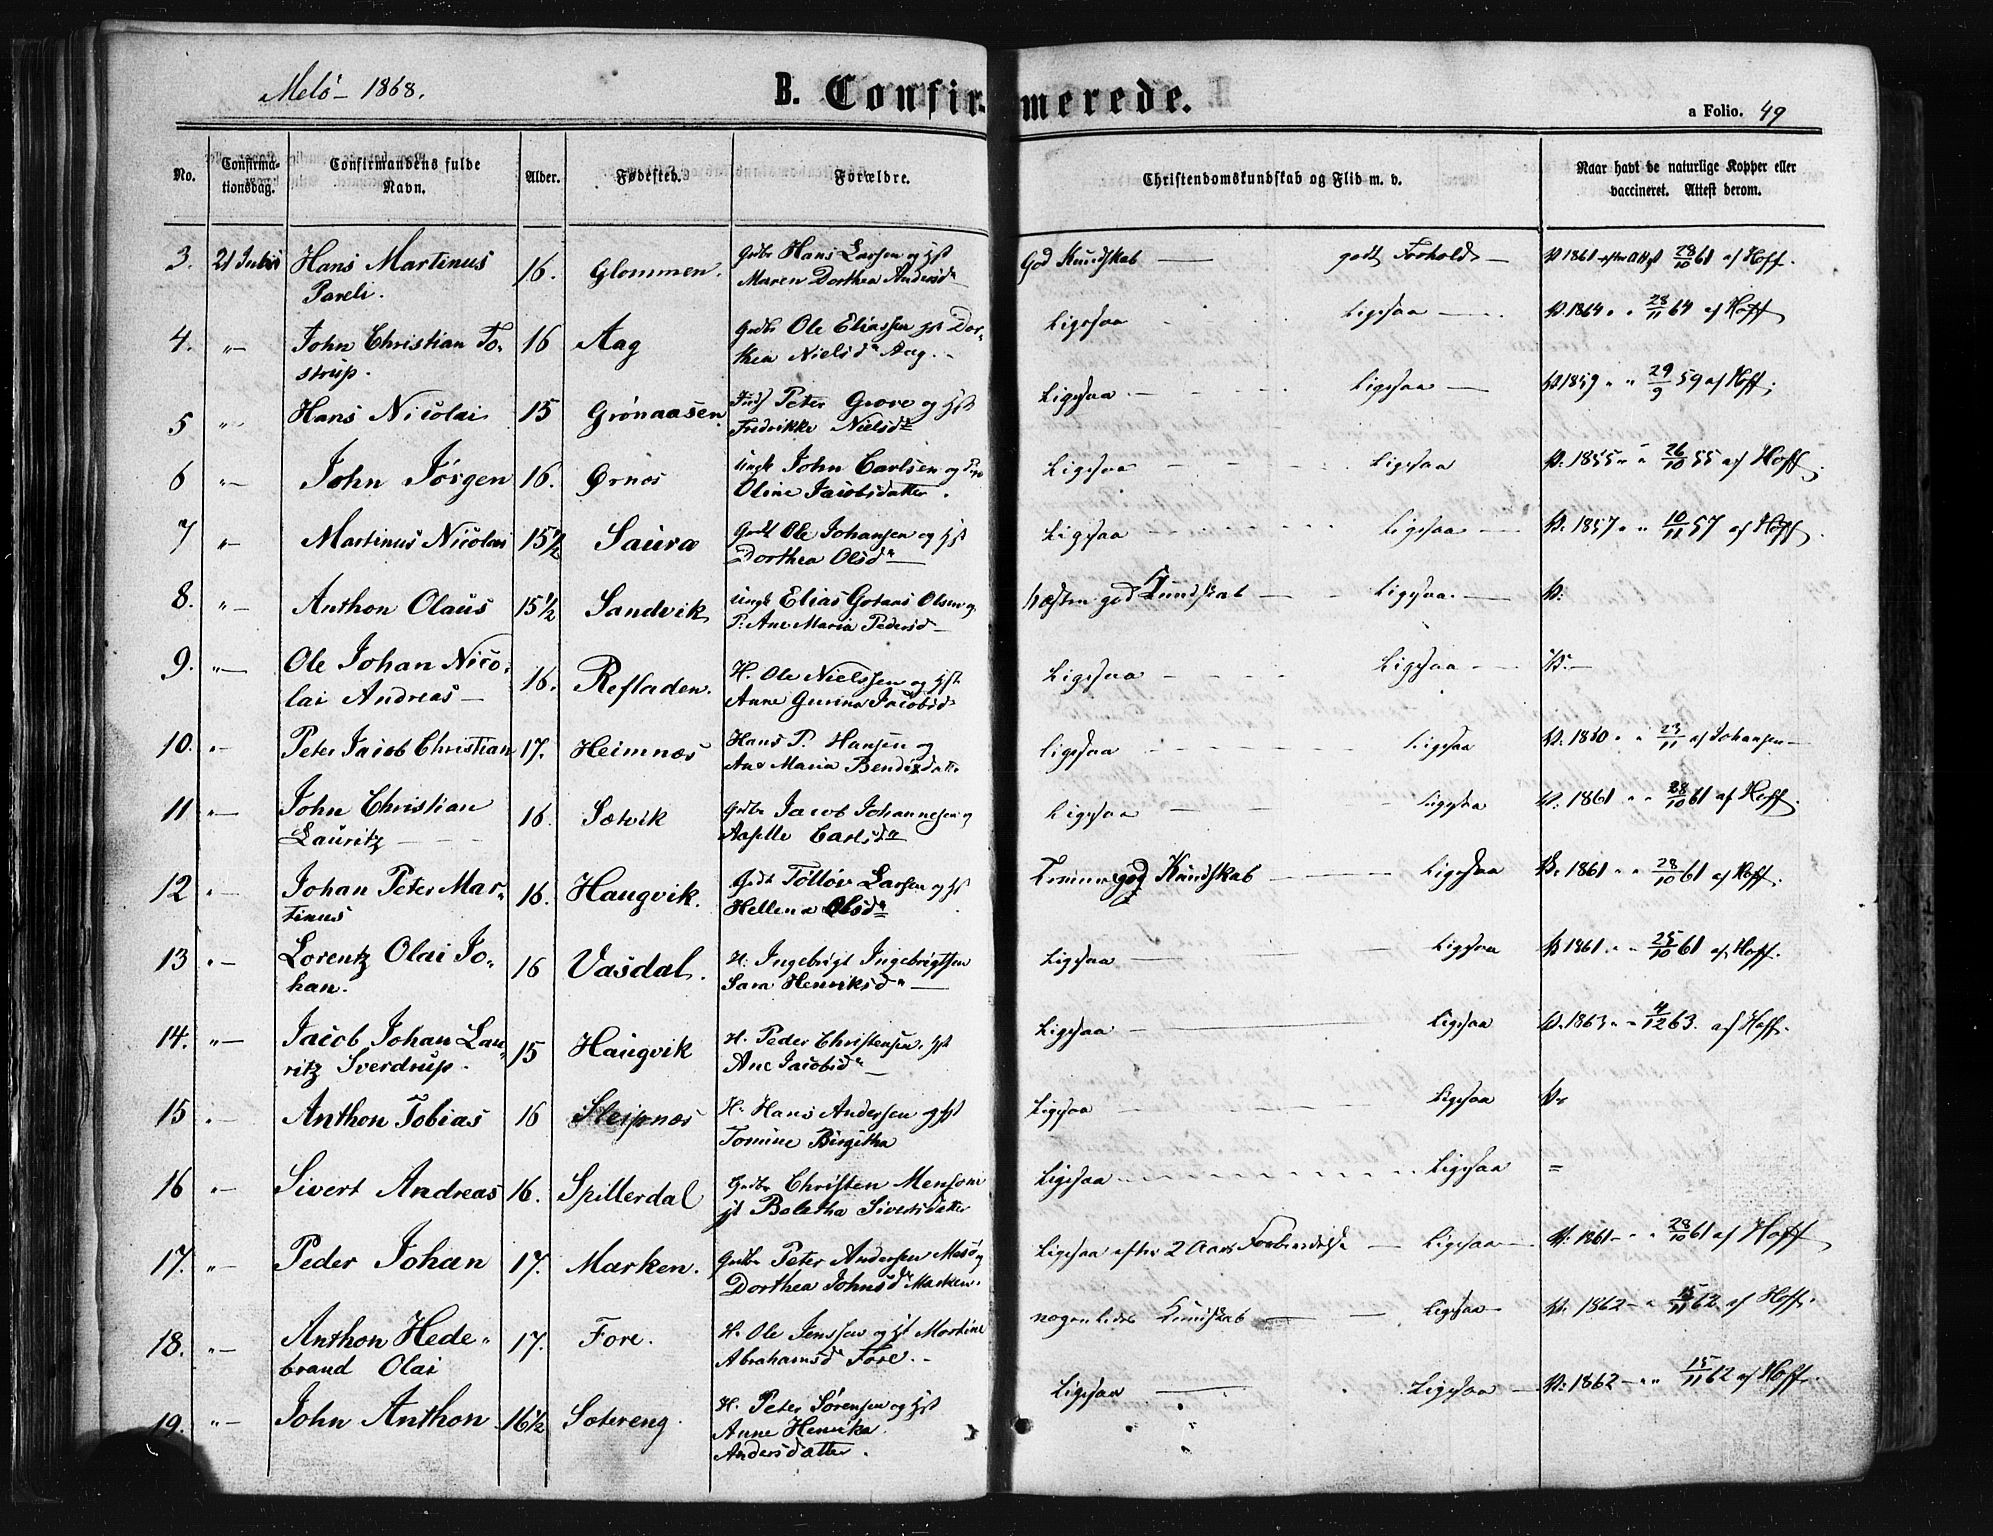 Melö 1868.
B. Confirmerede.
a Folio. 49
No. Confirmationsdag. Confirmandens fulde Navn. Alder. Fødested. Forældre. Christendomskundskab og Flid m. v. Naar havt de naturlige Kopper eller vaccineret. Attest derom.
3. 21 Julii Hans Martinus 16. Glommen. Gdbr Hans Larsen og Hst God Kundskab — godt Forhold — V. 1861 efter Attest 28/10 61 af Hoff.
Pareli. Maren Dorthea Andersd
4. "— John Christian To- 16 Aag Gdbr Ole Eliassen Hst Dor- Ligesaa Ligesaa V. 1864 " " 28/11 64 af Hoff
strup. thea Nielsd Aag.
5 "— Hans Nicolai 15 Grønaasen Peter Grove og Hst Ligesaa Ligesaa V. 1859 " " 29/9 59 af Hoff.
Fredrikke Nielsd
6 "— John Jørgen 16. Ørnes Ungk John Carlsen og Ligesaa Ligesaa V. 1855 " " 26/10 55 af Hoff.
Oline Jacobsdatter.
7 "— Martinus Nicolai 15 1/2 Saura Gdbr Ole Johansen og Hst Ligesaa Ligesaa V. 1857 " " 10/11 57 af Hoff.
Dorthea Olsd
8. "— Anthon Olaus 15 1/2 Sandvik Ungk Elias Olsen og Næsten god Kundskab Ligesaa V.
P. Ane Maria Pedersd
9. "— Ole Johan Nico- 16. Refladen. H. Ole Nielssen og Hst Ligesaa Ligesaa V.
lai Andreas Anne Jacobsd
10. "— Peter Jacob Christian 17. Heimnæs Hans P. Hansen og Ligesaa Ligesaa V. 23/11 af Johansen
Ane Maria Bendixdatt.
11 "— John Christian 16. Sætvik Gdbr Jacob Johannesen og Ligesaa Ligesaa V. 1861 " " 28/10 61 af Hoff.
Lauritz Aaselle Carlsd
12 "— Johan Peter Mar- 16. Haugvik. Gdbr Tølløv Larsen og Hst Temmeligod Kundskab Ligesaa V. 1861 " " 28/10 61 af Hoff.
tinus Hellena Olsd
13 "— Lorentz Olai Jo- 16 Vasdal. H. Ingebrigt Ingebrigtsen Ligesaa Ligesaa V. 1861 " " 25/10 61 af Hoff.
han. Sara Henriksd
14. "— Jacob Johan Lau- 15 Haugvik H. Peder Christensen. Hst Ligesaa Ligesaa V. 1863 " " 4/12 63. af Hoff.
ritz Sverdrup. Ane Jacobsd
15 "— Anthon Tobias 16 Sleipnæs H. Hans Andersen og Hst Ligesaa Ligesaa V.
Tomine Birgitha
16 "— Sivert Andreas 16. Spillerdal Gdbr Christen Ligesaa Ligesaa "
Hst Boletha Sivertsdatter
17. "— Peder Johan 17. Marken. Gdbr Peter Andersen Mesø og Ligesaa efter 2 Aars Forberedelse Ligesaa V. 1861 " " 28/10 61 af Hoff
Dorthea Johnsd Marken.
18. "— Anthon Hede- 17. Fore. H. Ole Jenssen og Hst Martine nogenledes Kundskab Ligesaa V. 1862 " 15/11 62 af Hoff.
brand Olai Abrahamsd Fore.
19. "— John Anthon 16 1/2 Sætereng. H. Peter Sørensen og Hst Ligesaa Ligesaa V. 1862 " " 15/11 62 af Hoff.
Anne Henrika
Andersdatter.